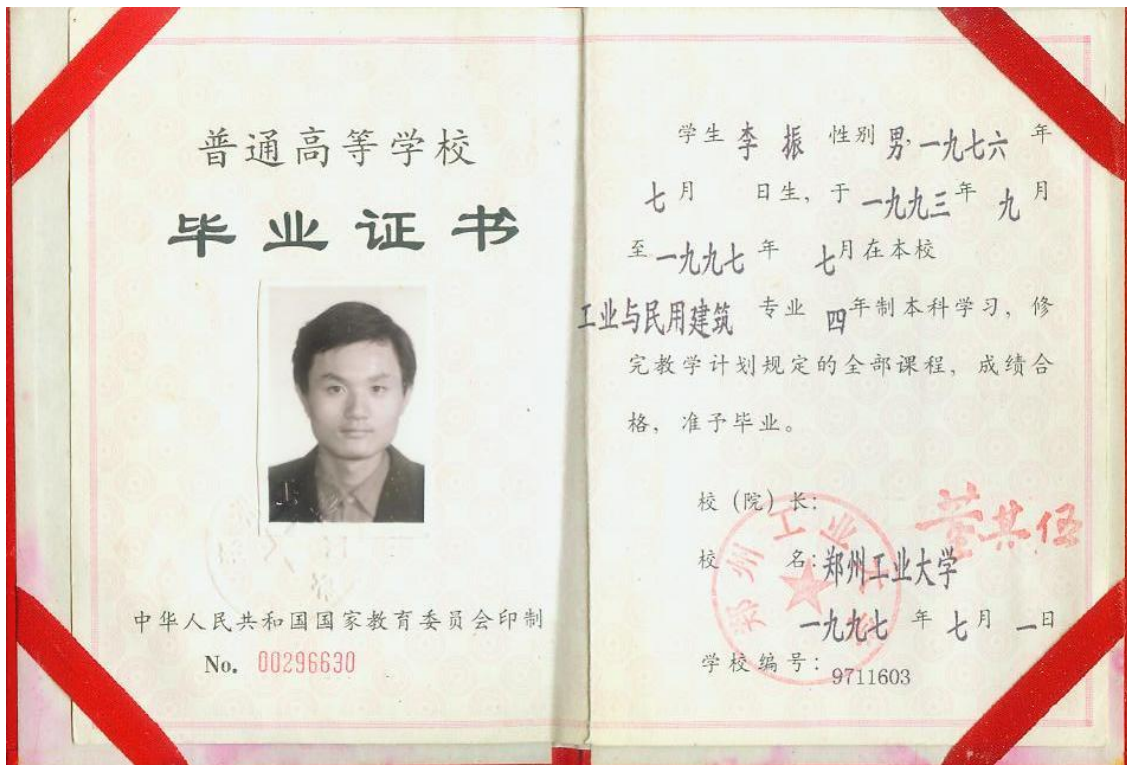 普通高等学校
毕业证书
中华人民共和国国家教育委员会印制
No. 00296630
学生 李 振 性别 男,一九七六 年
七月 日生, 于 一九九三年 九月
至 一九九七 年 七月在本校
工业与民用建筑 专业 四年制本科学习, 修
完教学计划规定的全部课程, 成绩合
格, 准予毕业。
校 (院) 长: 董其伍
校 名: 郑州工业大学
一九九七 年 七月 一日
学校编号: 9711603
郑州工业大学